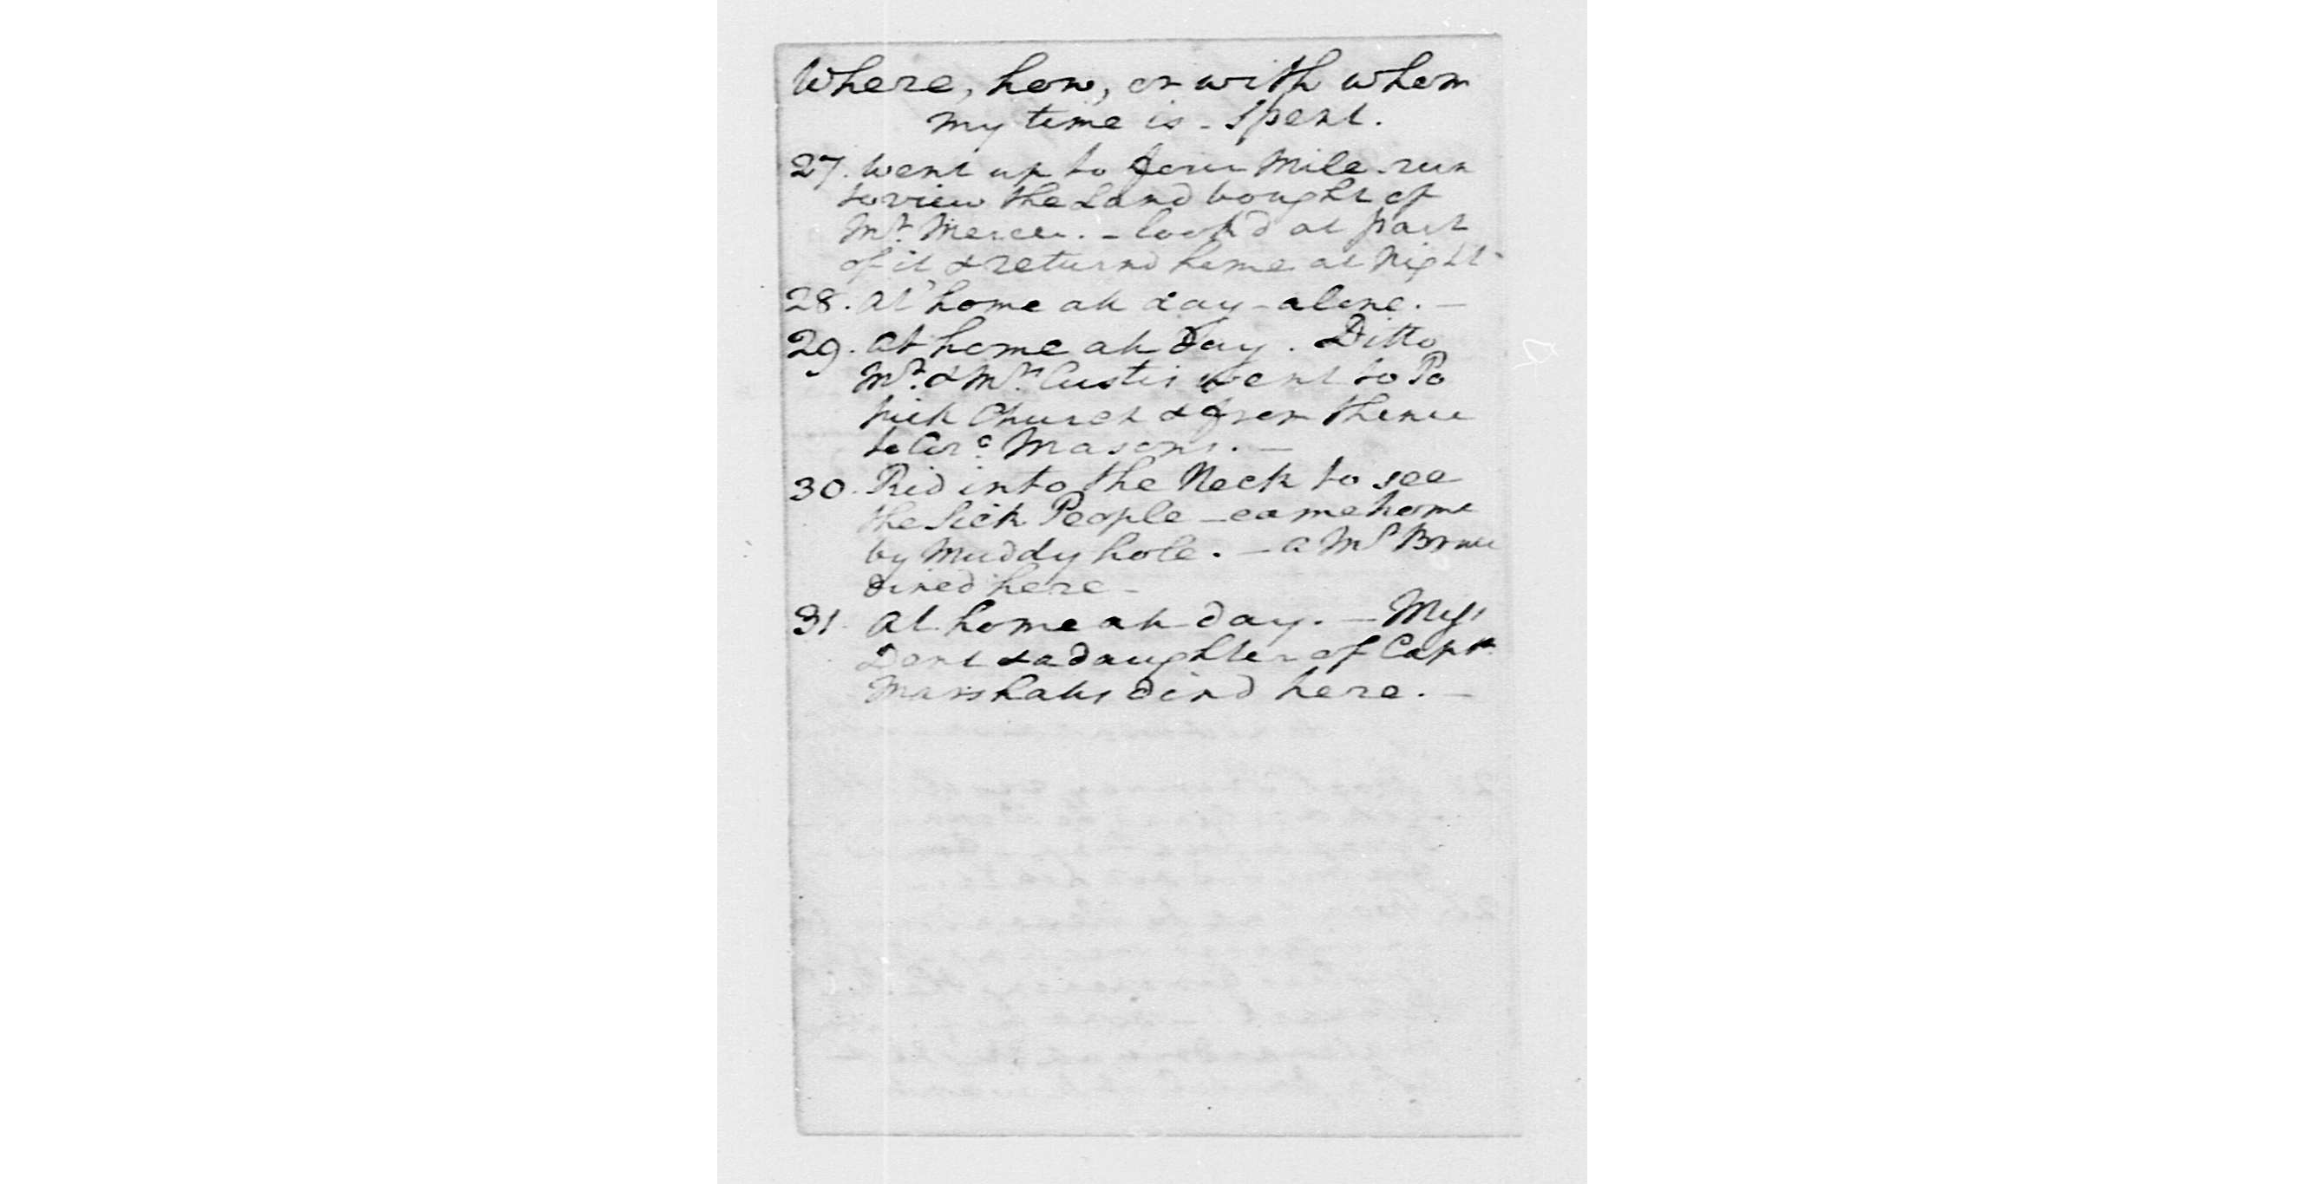 Where, how, or with whom
my time is - Spent.
27. Went up to four Mile run
to view the Land bought of
Mr. Mercer. - look'd at part
of it & returnd home at Night -
28. At home all day - alone. -
29. At home all day. Ditto
Mr. & Mrs. Custis went to Po
hick Church & from thence
to Colo. Masons. -
30. Rid into the Neck to see
the Sick People - came home
by Muddy hole. - a Mr.
dined here -
31. At home all day. - Miss
Dent & a daughter of Captn.
Marshalls dind here. -